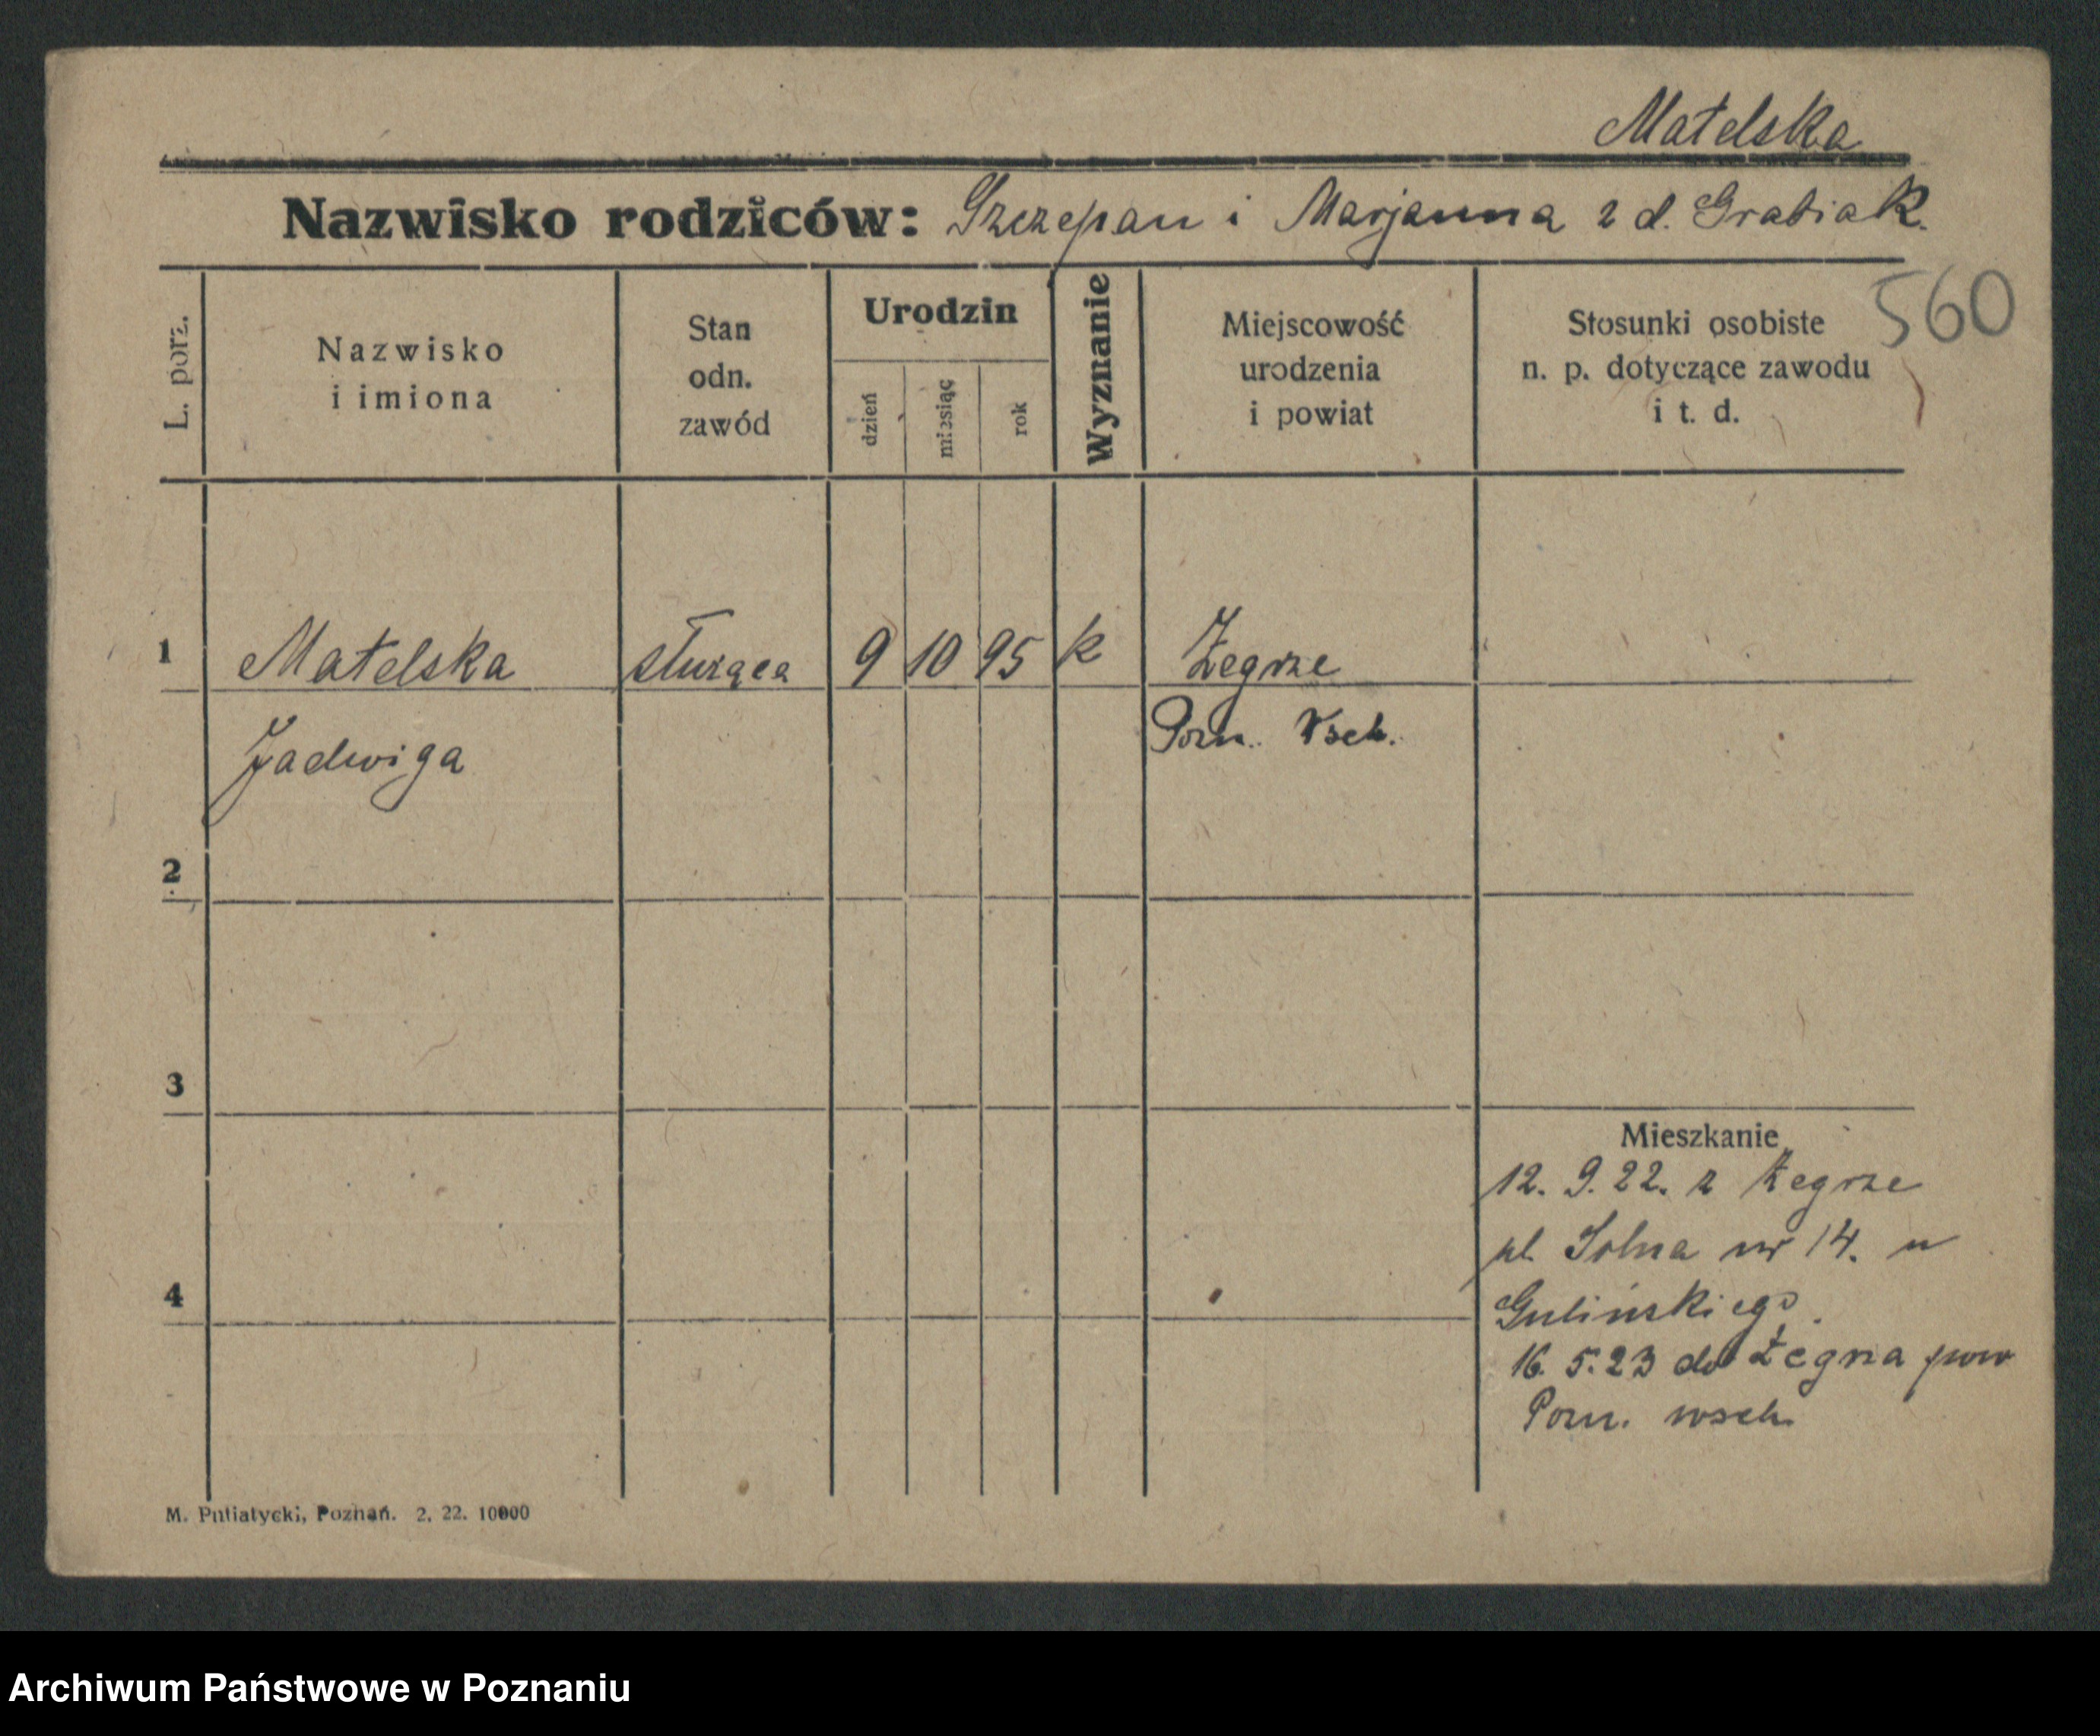 Matelska
Nazwisko rodziców: Szczepan i Marjanna z d. Grabiak.
560
L. porz.
Nazwisko
i imiona
Stan
odn.
zawód
Urodzin
dzień
miesiąc
rok
Wyznanie
Miejscowość
urodzenia
i powiat
Stosunki osobiste
n. p. dotyczące zawodu
i t. d.
1 Matelska służąca 9 10 95 k Żegrze
Jadwiga Pozn. Wsch.
2
3
Mieszkanie
12. 9. 22. z Żegrze
pl. Solna nr 14. u
4
Gulińskiego.
16. 5. 23 do Żegrza pow
Pozn. wsch.
M. Putiatycki, Poznań. 2. 22. 10000
Archiwum Państwowe w Poznaniu